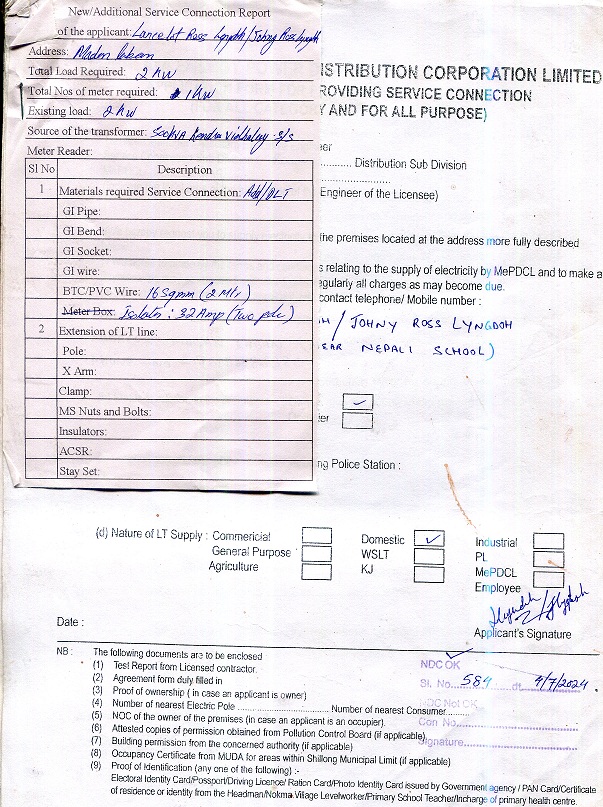 New/Additional Service Connection Report
of the applicant: Lancelot Ross Lyngdoh / Johny Ross Lyngdoh
Address:
Total Load Required: 2 kw
Total Nos of meter required: 1 kw
Existing load: 2 kw
Source of the transformer: Kendra S/S
Meter Reader:
Sl No Description
1 Materials required Service Connection: Add/DLT
GI Pipe:
GI Bend:
GI Socket:
GI wire:
BTC/PVC Wire: 16 sqmm (2 Mtr)
Meter Box: Isolator : 32 Amp (Two pole)
2 Extension of LT line:
Pole:
X Arm:
Clamp:
MS Nuts and Bolts:
Insulators:
ACSR:
Stay Set:
ISTRIBUTION CORPORATION LIMITED
ROVIDING SERVICE CONNECTION
Y AND FOR ALL PURPOSE)
er
............ Distribution Sub Division
Engineer of the Licensee)
he premises located at the address more fully described
s relating to the supply of electricity by MePDCL and to make a
egularly all charges as may become due.
contact telephone/ Mobile number :
H / JOHNY ROSS LYNGDOH
EAR NEPALI SCHOOL)
ier
ng Police Station :
(d) Nature of LT Supply : Commericial Domestic ✓ Industrial
General Purpose WSLT PL
Agriculture KJ MePDCL
Employee
Date : Applicant's Signature
NB : The following documents are to be enclosed
(1) Test Report from Licensed contractor.
(2) Agreement form duly filled in
(3) Proof of ownership ( in case an applicant is owner)
(4) Number of nearest Electric Pole .............................. Number of nearest Consumer........
(5) NOC of the owner of the premises (in case an applicant is an occupier).
(6) Attested copies of permission obtained from Pollution Control Board (if applicable)
(7) Building permission from the concerned authority (if applicable)
(8) Occupancy Certificate from MUDA for areas within Shillong Municipal Limit (if applicable)
(9) Proof of Identification (any one of the following :-
Electoral Identity Card/Possport/Driving Licence/ Ration Card/Photo Identity Card issued by Government agency / PAN Card/Certificate
of residence or identity from the Headman/Nokma Village Levelworker/Primary School Teacher/Incharge of primary health centre.
NDC OK
Sl. No. 584 dt. 4/7/2024
NDC Not OK
Con No.
Signature